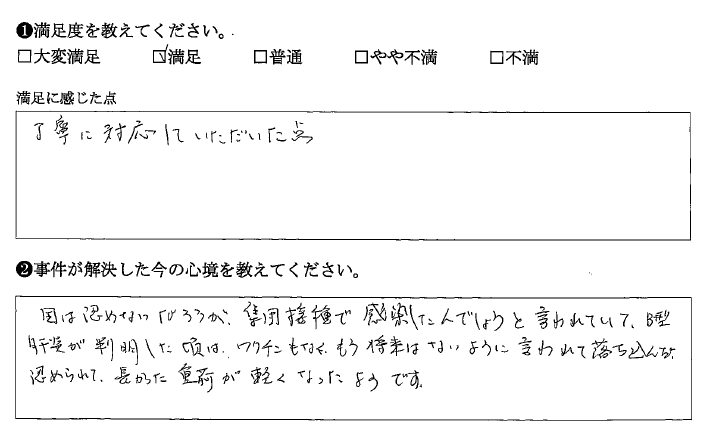 ❶満足度を教えてください。
□大変満足 ☑満足 □普通 □やや不満 □不満
満足に感じた点
丁寧に対応していただいた点
❷事件が解決した今の心境を教えてください。
国は認めないだろうが、集団接種で感染したんでしょうと言われていて、B型
肝炎が判明した頃は、ワクチンもなく、もう将来はないように言われて落ち込んだが、
認められて、長かった重荷が軽くなったようです。